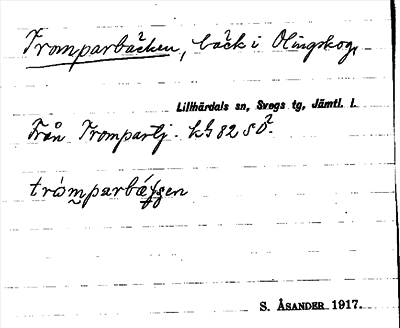 Tromparbäcken, bäck i Olingskog,
Lillhärdals sn, Svegs tg, Jämtl. l.
Från Trompartj. kb 82 S Ö.
S. ÅSANDER 1917.